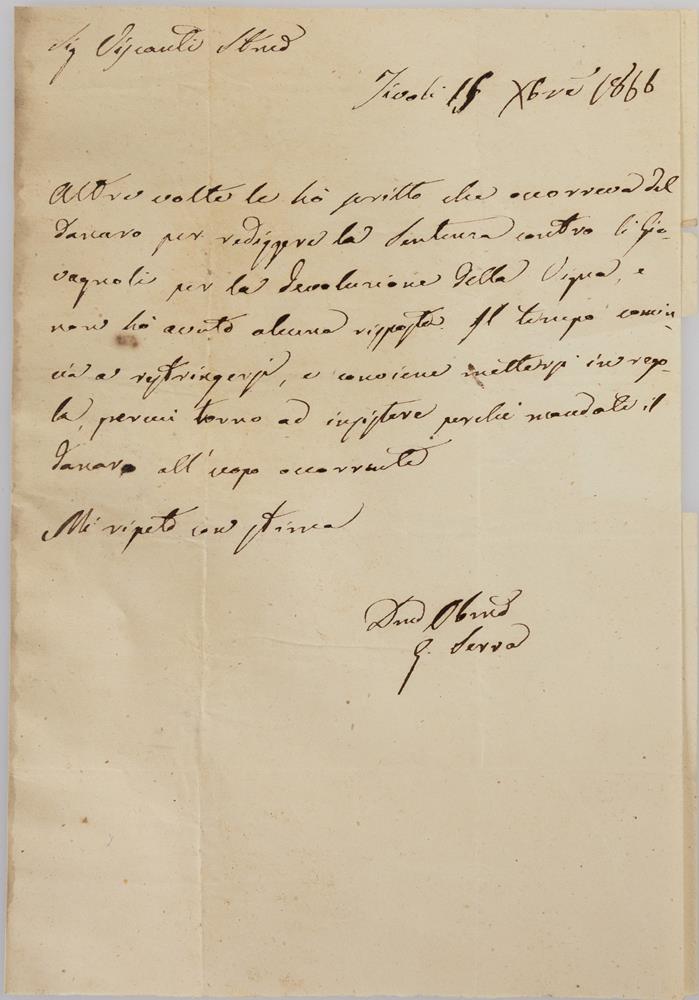 Sig Visconti Stmo
Tivoli 15 Xbre 1866
Altre volte le hò scritto che occorreva del
danaro per rediggere la Sentenza contro li Gio-
vagnoli per la devoluzione della Vigna, e
non hò avuto alcuna risposta. Il tempo comin-
cia a ristringersi, e conviene mettersi in rego-
la, percui torno ad insistere perche mandate il
danaro all'uopo occorrente
Mi ripeto con stima
Dmo Obmo
G. Serra